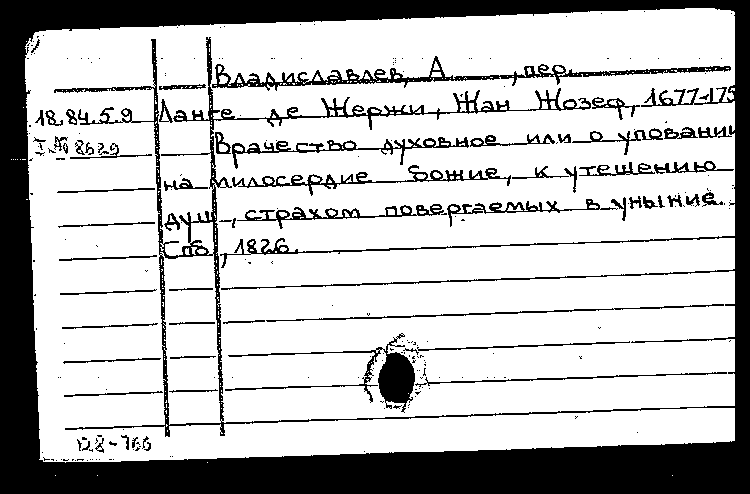 Владиславлев, А ,пер.
18.84.5.9 Ланге де Жержи, Жан Жозеф, 1677-175
I № 8629 Врачество духовное или о уповании
на милосердие Божие, к утешению
душ, страхом повергаемых в уныние.
Спб, 1826.
128-766